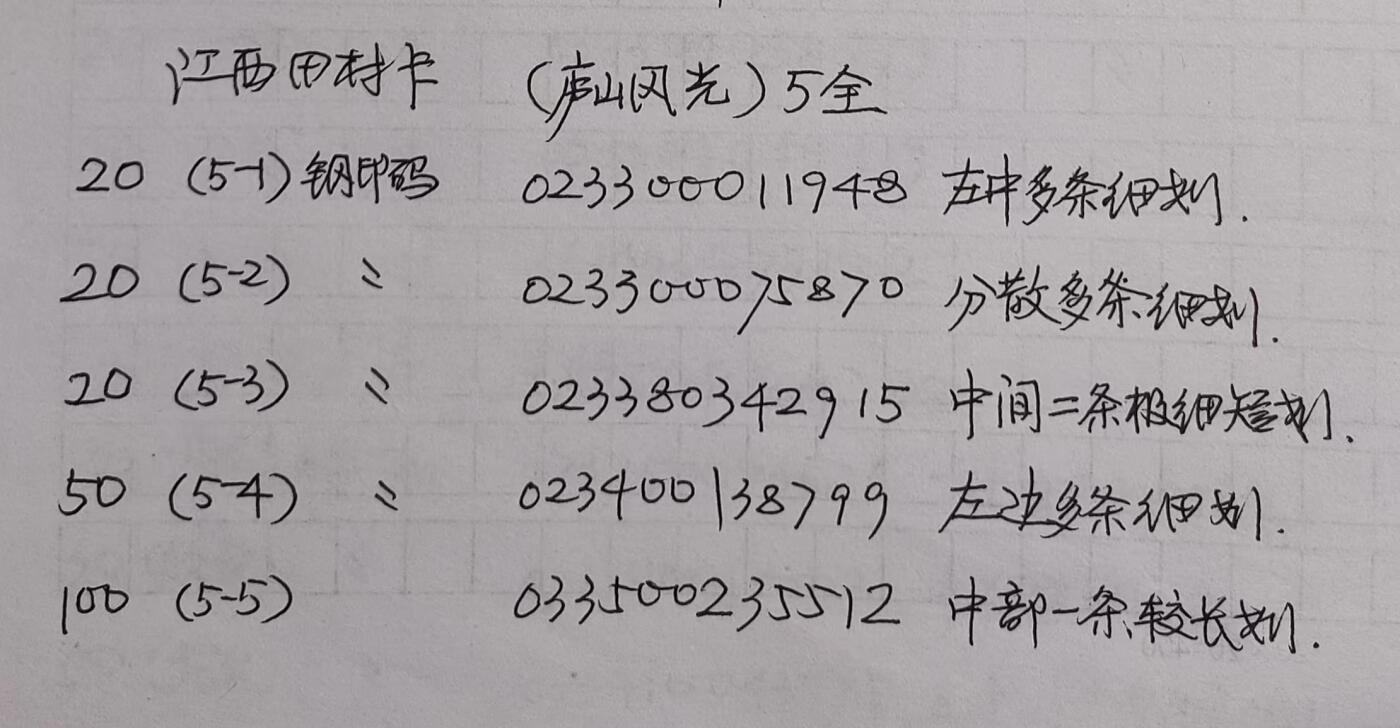 江西田村卡 (庐山风光) 5全
20 (5-1) 钢印码 023300011948 左中多条细划.
20 (5-2) 〃 023300075870 分散多条细划.
20 (5-3) 〃 023380342915 中间二条极细短划.
50 (5-4) 〃 023400138799 左边多条细划.
100 (5-5) 033500235512 中部一条较长划.